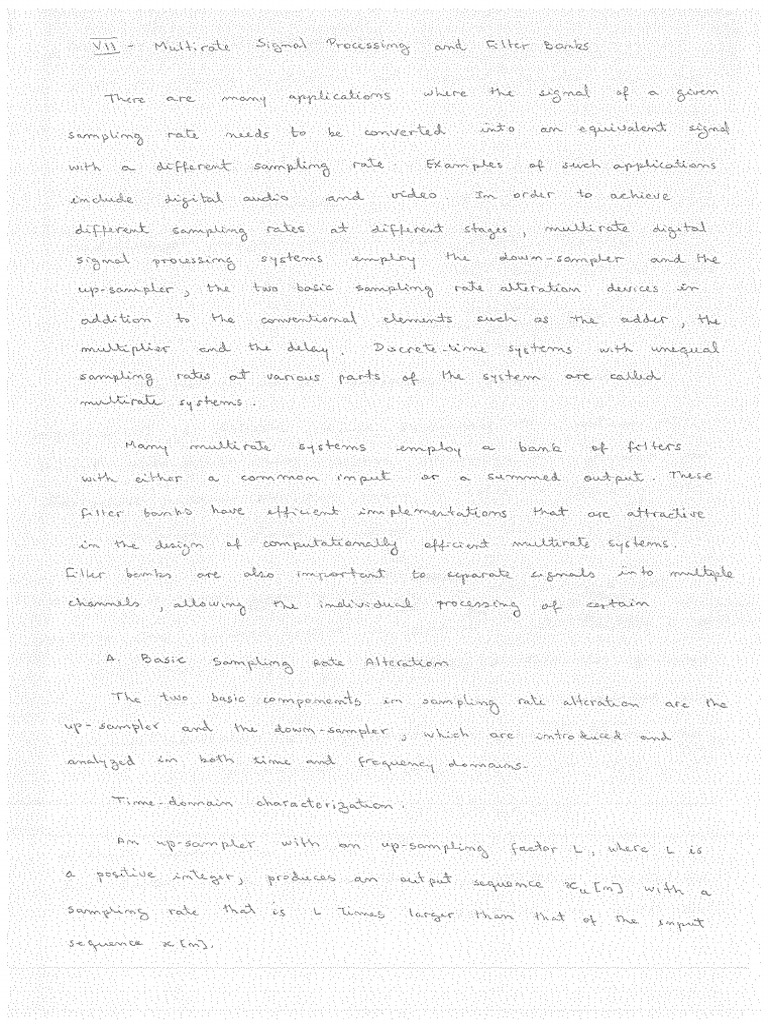 VII - Multirate Signal Processing and Filter Banks
There are many applications where the signal of a given
sampling rate needs to be converted into an equivalent signal
with a different sampling rate. Examples of such applications
include digital audio and video. In order to achieve
different sampling rates at different stages, multirate digital
signal processing systems employ the down-sampler and the
up-sampler, the two basic sampling rate alteration devices in
addition to the conventional elements such as the adder, the
multiplier and the delay. Discrete-time systems with unequal
sampling rates at various parts of the system are called
multirate systems.
Many multirate systems employ a bank of filters
with either a common input or a summed output. These
filter banks have efficient implementations that are attractive
in the design of computationally efficient multirate systems.
Filter banks are also important to separate signals into multiple
channels, allowing the individual processing of certain
A. Basic Sampling Rate Alteration
The two basic components in sampling rate alteration are the
up-sampler and the down-sampler, which are introduced and
analyzed in both time and frequency domains.
Time-domain characterization.
An up-sampler with an up-sampling factor L, where L is
a positive integer, produces an output sequence xu[n] with a
sampling rate that is L Times larger than that of the input
sequence x[n].